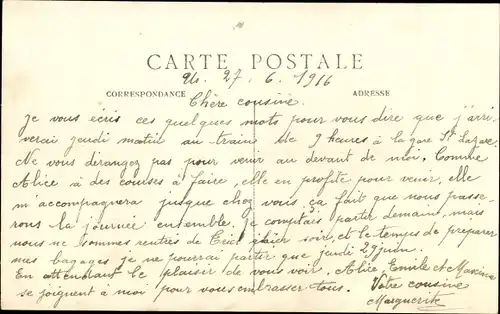 CARTE POSTALE
27. 6. 1916
CORRESPONDANCE
ADRESSE
Chère cousine.
Je vous écris ces quelques mots pour vous dire que j'arri-
verai jeudi matin au train de 9 heures à la gare St Lazare.
Ne vous dérangez pas pour venir au devant de moi. Comme
Alice à des courses à faire, elle en profite pour venir, elle
m'accompagnera jusque chez vous, ça fait que nous passe-
rons la journée ensemble. Je comptais partir demain, mais
nous ne sommes rentrés de hier soir, et le temps de préparer
mes bagages je ne pourrai partir que jeudi 29 juin.
En attendant le plaisir de vous voir. Alice, Emile et Maxime
se joignent à moi pour vous embrasser tous. Votre cousine
Marguerite